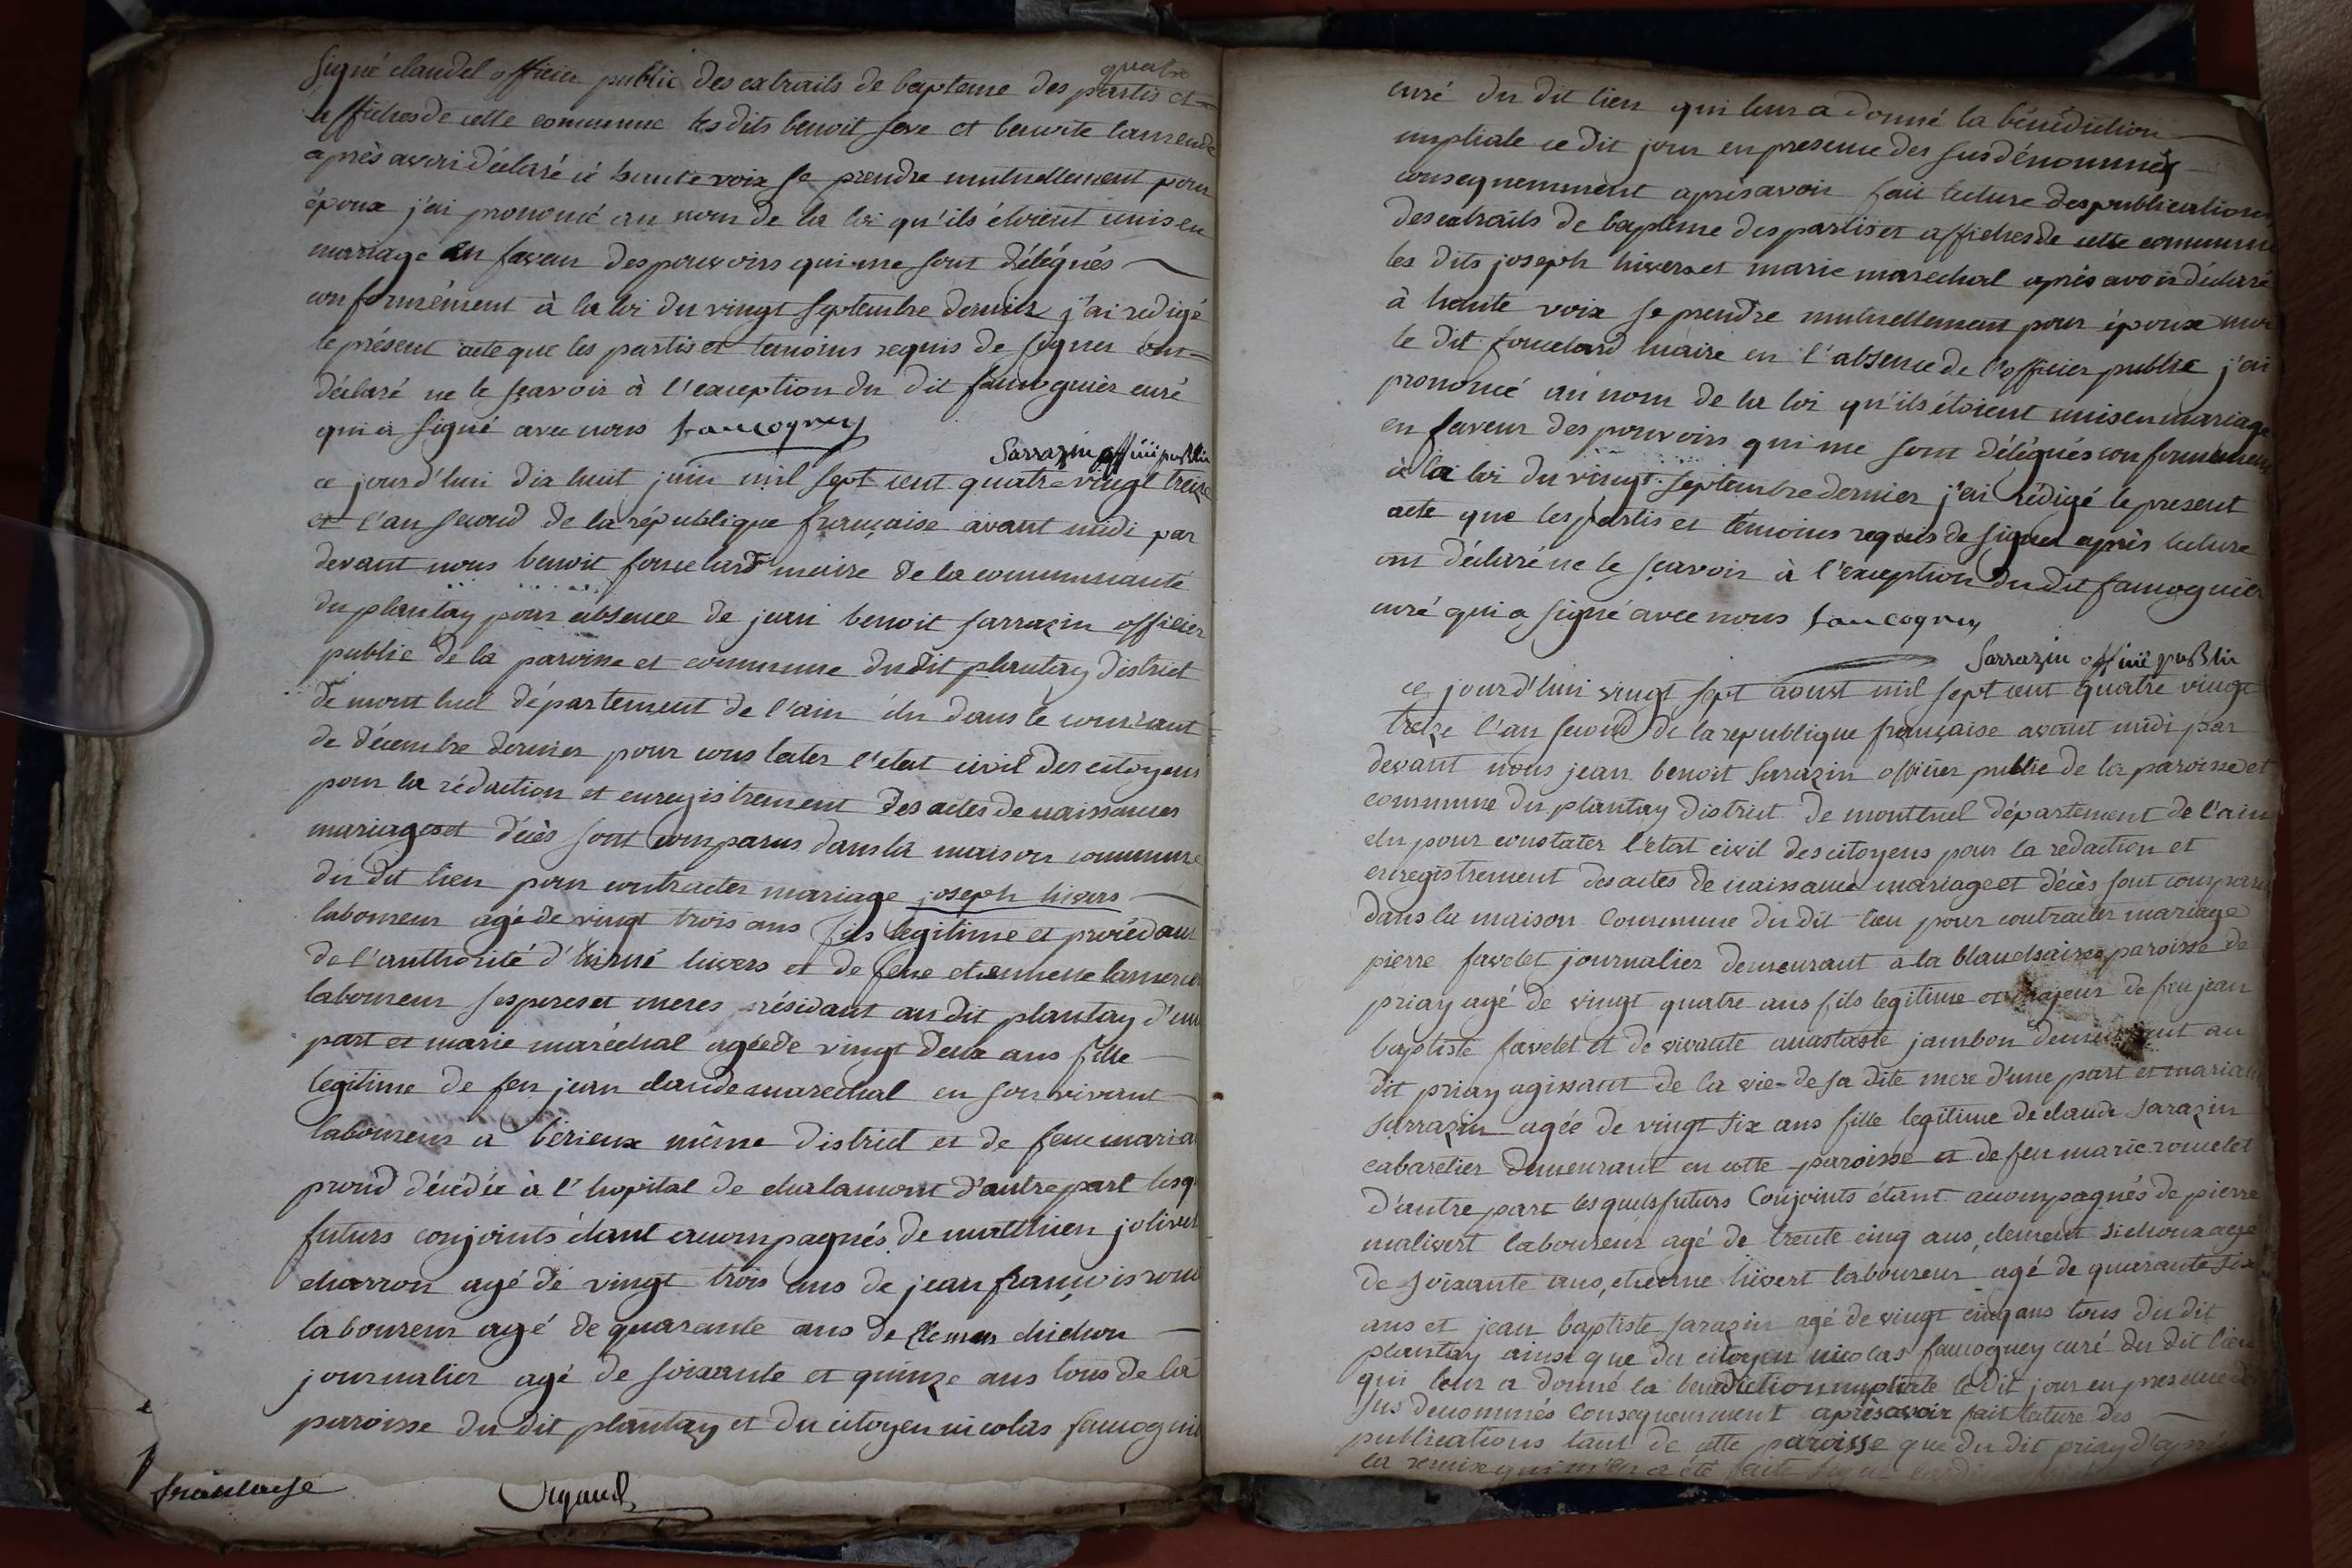 quatre
signé claudel officier public des extraits de bapteme des partis et
affiches de cette commune les dits benoit seve et benoite
après avoir déclaré à haute voix se prendre mutuellement pour
époux j'ai prononcé au nom de la loi qu'ils étoient unis en
mariage en faveur des pouvoirs qui me sont délégués
conformément à la loi du vingt septembre dernier j'ai redigé
le présent acte que les partis et temoins requis de signer ont
déclaré ne le sçavoir à l'exception du dit faucognier curé
qui a signé avec nous faucogney
Sarrazin offiié publin
ce jourd'hui dix huit juin mil sept cent quatre vingt treize
et l'an second de la république française avant midi par
devant nous benoit fourelard maire de la communauté
du plantay pour absence de jean benoit sarrazin officier
public de la paroisse et commune du dit plantay district
de mont luel département de l'ain élu dans le courrant
de décembre dernier pour constater l'état civil des citoyens
pour la rédaction et enregistrement des actes de naissances
mariages et décès sont comparus dans la maison commune
du dit lieu pour contracter mariage joseph hivers
laboureur agé de vingt trois ans fils legitime et procédant
de l'authorité d' hivers et de feue etiennette
laboureur ses peres et meres résidant au dit plantay d'une
part et marie maréchal agée de vingt deux ans fille
legitime de feu jean claude marechal en son vivant
laboureur a bérieux même district et de feue maria
proud décédée à l'hopital de chalamont d'autre part lesq
futurs conjoints étant accompagnés de matthieu jolivet
charron agé de vingt trois ans de jean françois
laboureur agé de quarante ans de chichon
journalier agé de soixante et quinze ans tous de la
paroisse du dit plantay et du citoyen nicolas faucognié
curé du dit lieu qui leur a donné la bénédiction
nuptiale ce dit jour en presence des susdénommés
consequemment après avoir fait lecture des publications
des extraits de bapteme des partis et affiches de cette commune
les dits joseph hivers et marie marechal après avoir déclaré
à haute voix se prendre mutuellement pour époux moi
le dit fourelard maire en l'absence de l'officier public j'ai
prononcé au nom de la loi qu'ils étoient unis en mariage
en faveur des pouvoirs qui me sont délégués conformément
à la loi du vingt septembre dernier j'ai rédigé le present
acte que les partis et temoins requis de signer après lecture
ont déclaré ne le sçavoir à l'exception du dit faucognier
curé qui a signé avec nous faucogney
Sarrazin offiié publin
ce jourd'hui vingt sept aoust mil sept cent quatre vingt
treize l'an second de la republique française avant midi par
devant nous jean benoit Sarazin officier public de la paroisse et
commune du plantay district de montluel département de l'ain
élu pour constater l'etat civil des citoyens pour la redaction et
enregistrement des actes de naissance mariage et décès sont comparu
dans la maison Commune du dit lieu pour contracter mariage
pierre favelet journalier demeurant a la paroisse de
priay agé de vingt quatre ans fils legitime et majeur de feu jean
baptiste favelet et de vivante anastasie jambon demeurant au
dit priay agissant de la vie de sa dite mere d'une part et mariane
sarrazin agée de vingt six ans fille legitime de claude sarazin
cabaretier demeurant en cette paroisse et de feu marie
d'autre part lesquels futurs Conjoints étant accompagnés de pierre
malivert laboureur agé de trente cinq ans, clement sichoux agé
de soixante ans, etienne hivert laboureur agé de quarante six
ans et jean baptiste sarazin agé de vingt cinq ans tous du dit
plantay ainsi que du citoyen nicolas faucogney curé du dit lieu
qui leur a donné la benediction nuptiale le dit jour en presence des
sus denommés Consequemment après avoir fait lecture des
publications tant de cette paroisse que du dit priay d'après
la remise qui m'en a été faite
Orgaud